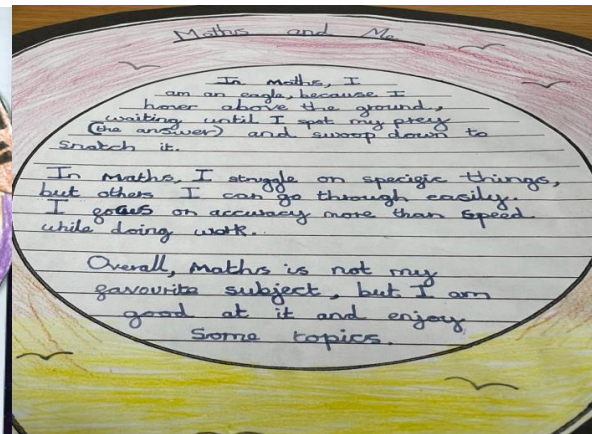 Maths and Me
In maths, I
am an eagle, because I
hover above the ground,
waiting until I spot my prey
(the answer) and swoop down to
snatch it.
In maths, I struggle on specific things,
but others I can go through easily.
I focus on accuracy more than speed
while doing work.
Overall, maths is not my
favourite subject, but I am
good at it and enjoy
some topics.